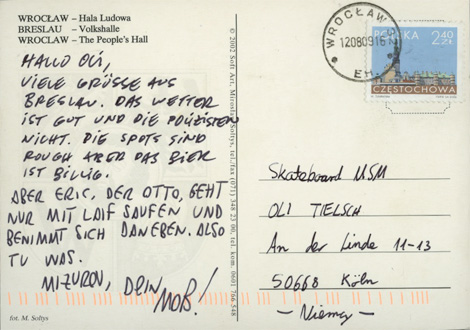 WROCŁAW – Hala Ludowa
BRESLAU – Volkshalle
WROCLAW – The People's Hall
HALLO OLI,
VIELE GRÜSSE AUS
BRESLAU. DAS WETTER
IST GUT UND DIE POLIZISTEN
NICHT. DIE SPOTS SIND
ROUGH ABER DAS BIER
IST BILLIG.
ABER ERIC, DER OTTO, GEHT
NUR MIT LAIF SAUFEN UND
BENIMMT SICH DANEBEN. ALSO
TU WAS.
MIZUROV, DEIN
fot. M. Sołtys
© 2002 Soft Art, Mirosław Sołtys, tel./fax (071) 348 23 00, tel. kom. 0601 766 548
WROCŁAW
120809 16
POLSKA 2,40
CZĘSTOCHOWA
Skateboard MSM
OLI TIELSCH
An der Linde 11-13
50668 Köln
- Niemcy -